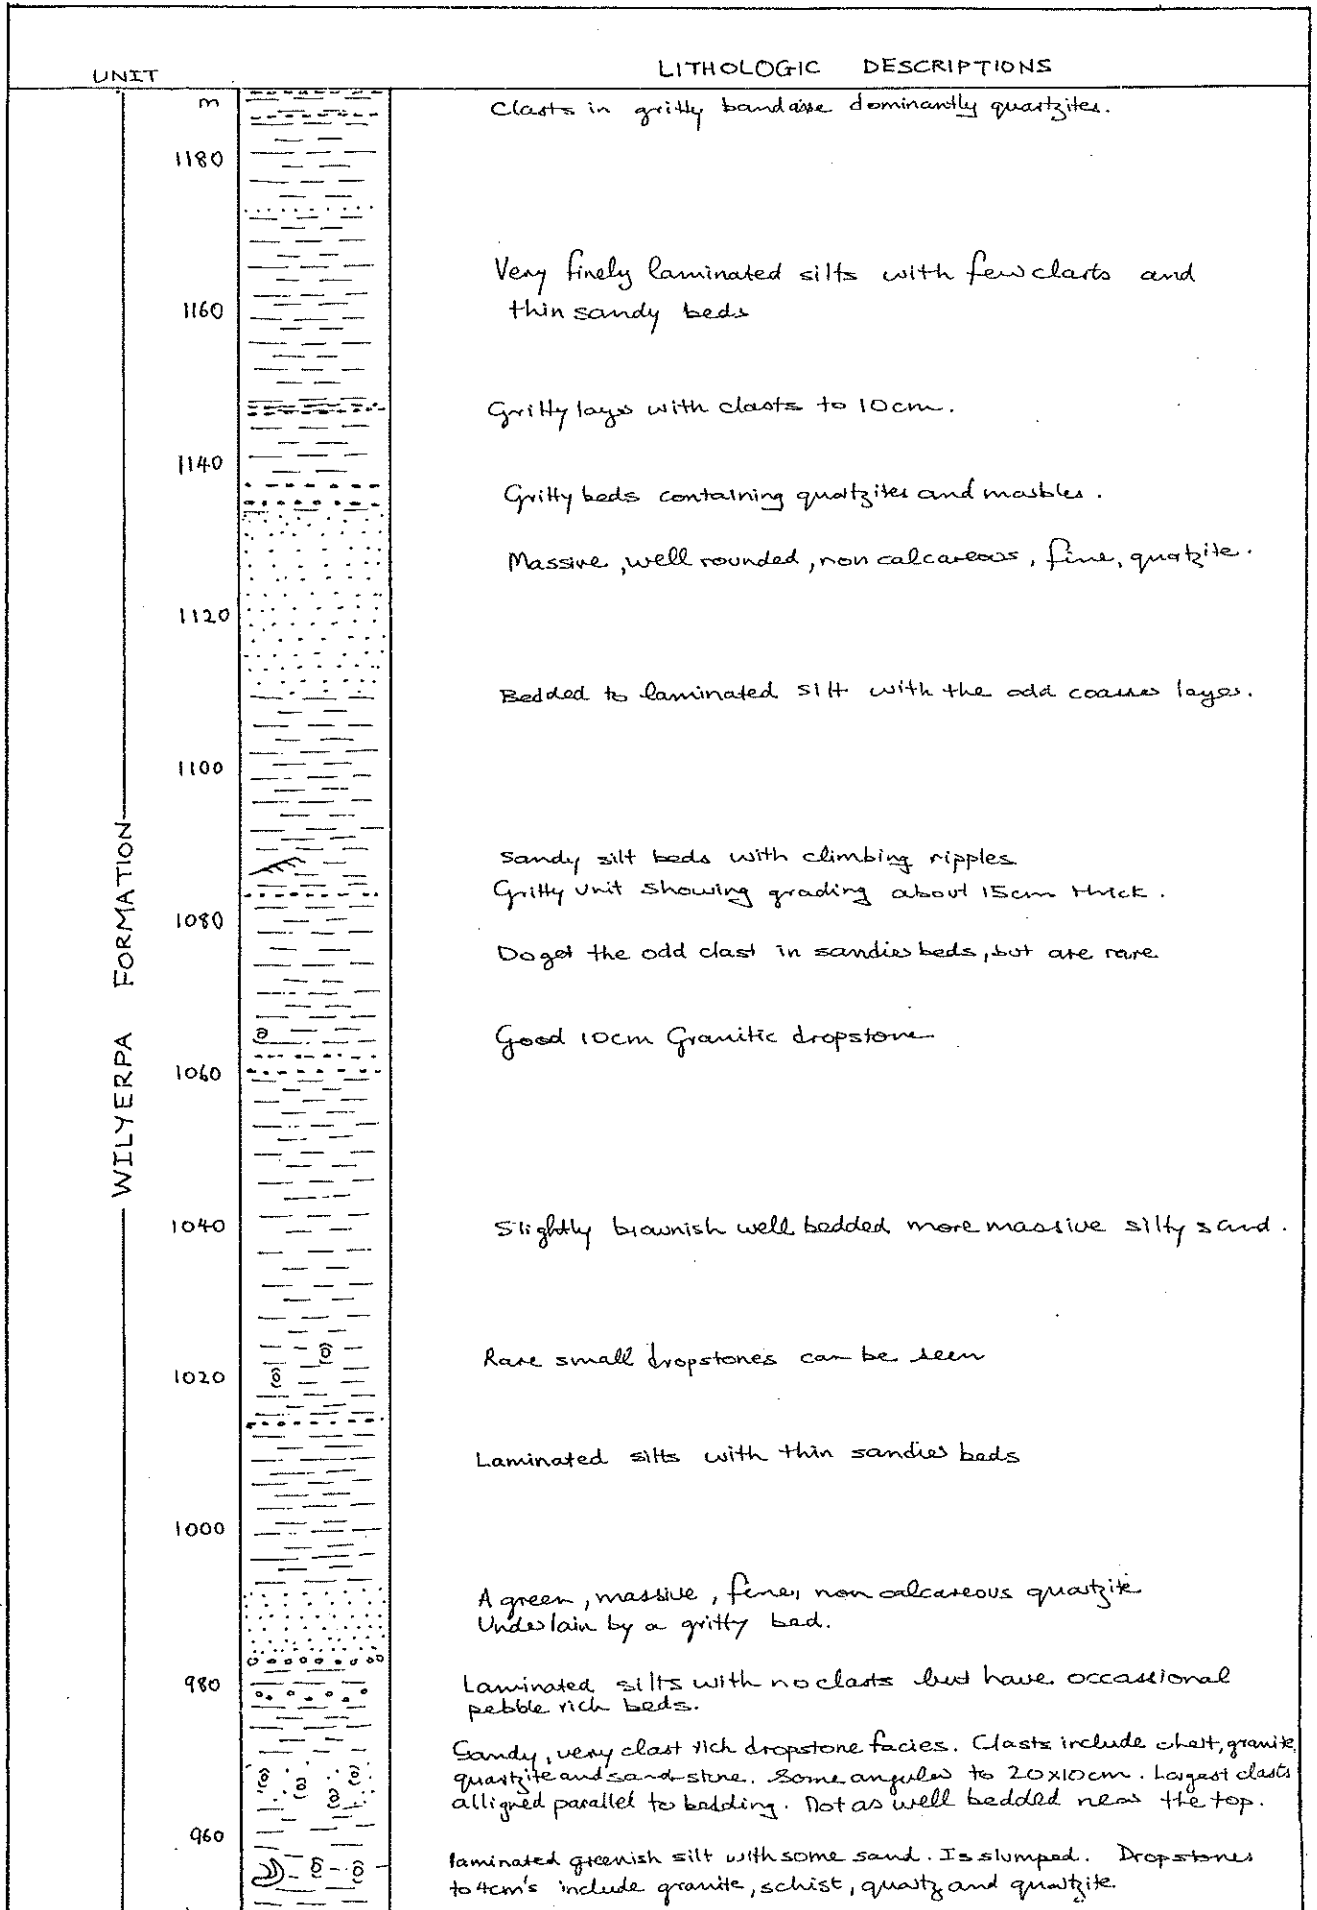 UNIT
LITHOLOGIC DESCRIPTIONS
m
Clasts in gritty band are dominantly quartzites.
1180
Very finely laminated silts with few clasts and
thin sandy beds
1160
Gritty layer with clasts to 10cm.
1140
Gritty beds containing quartzites and marbles.
Massive, well rounded, non calcareous, fine, quartzite.
1120
Bedded to laminated silt with the odd coarser layer.
1100
Sandy silt beds with climbing ripples
Gritty unit showing grading about 15cm thick.
1080
Do get the odd clast in sandier beds, but are rare
Good 10cm Granitic dropstone
1060
WILYERPA FORMATION
1040
Slightly brownish well bedded more massive silty sand.
Rare small dropstones can be seen
1020
Laminated silts with thin sandier beds
1000
A green, massive, fine, non calcareous quartzite
Underlain by a gritty bed.
980
Laminated silts with no clasts but have occassional
pebble rich beds.
Sandy, very clast rich dropstone facies. Clasts include chert, granite,
quartzite and sandstone. Some angular to 20x10cm. Largest clasts
alligned parallel to bedding. Not as well bedded near the top.
960
laminated greenish silt with some sand. Is slumped. Dropstones
to 4cm's include granite, schist, quartz and quartzite.